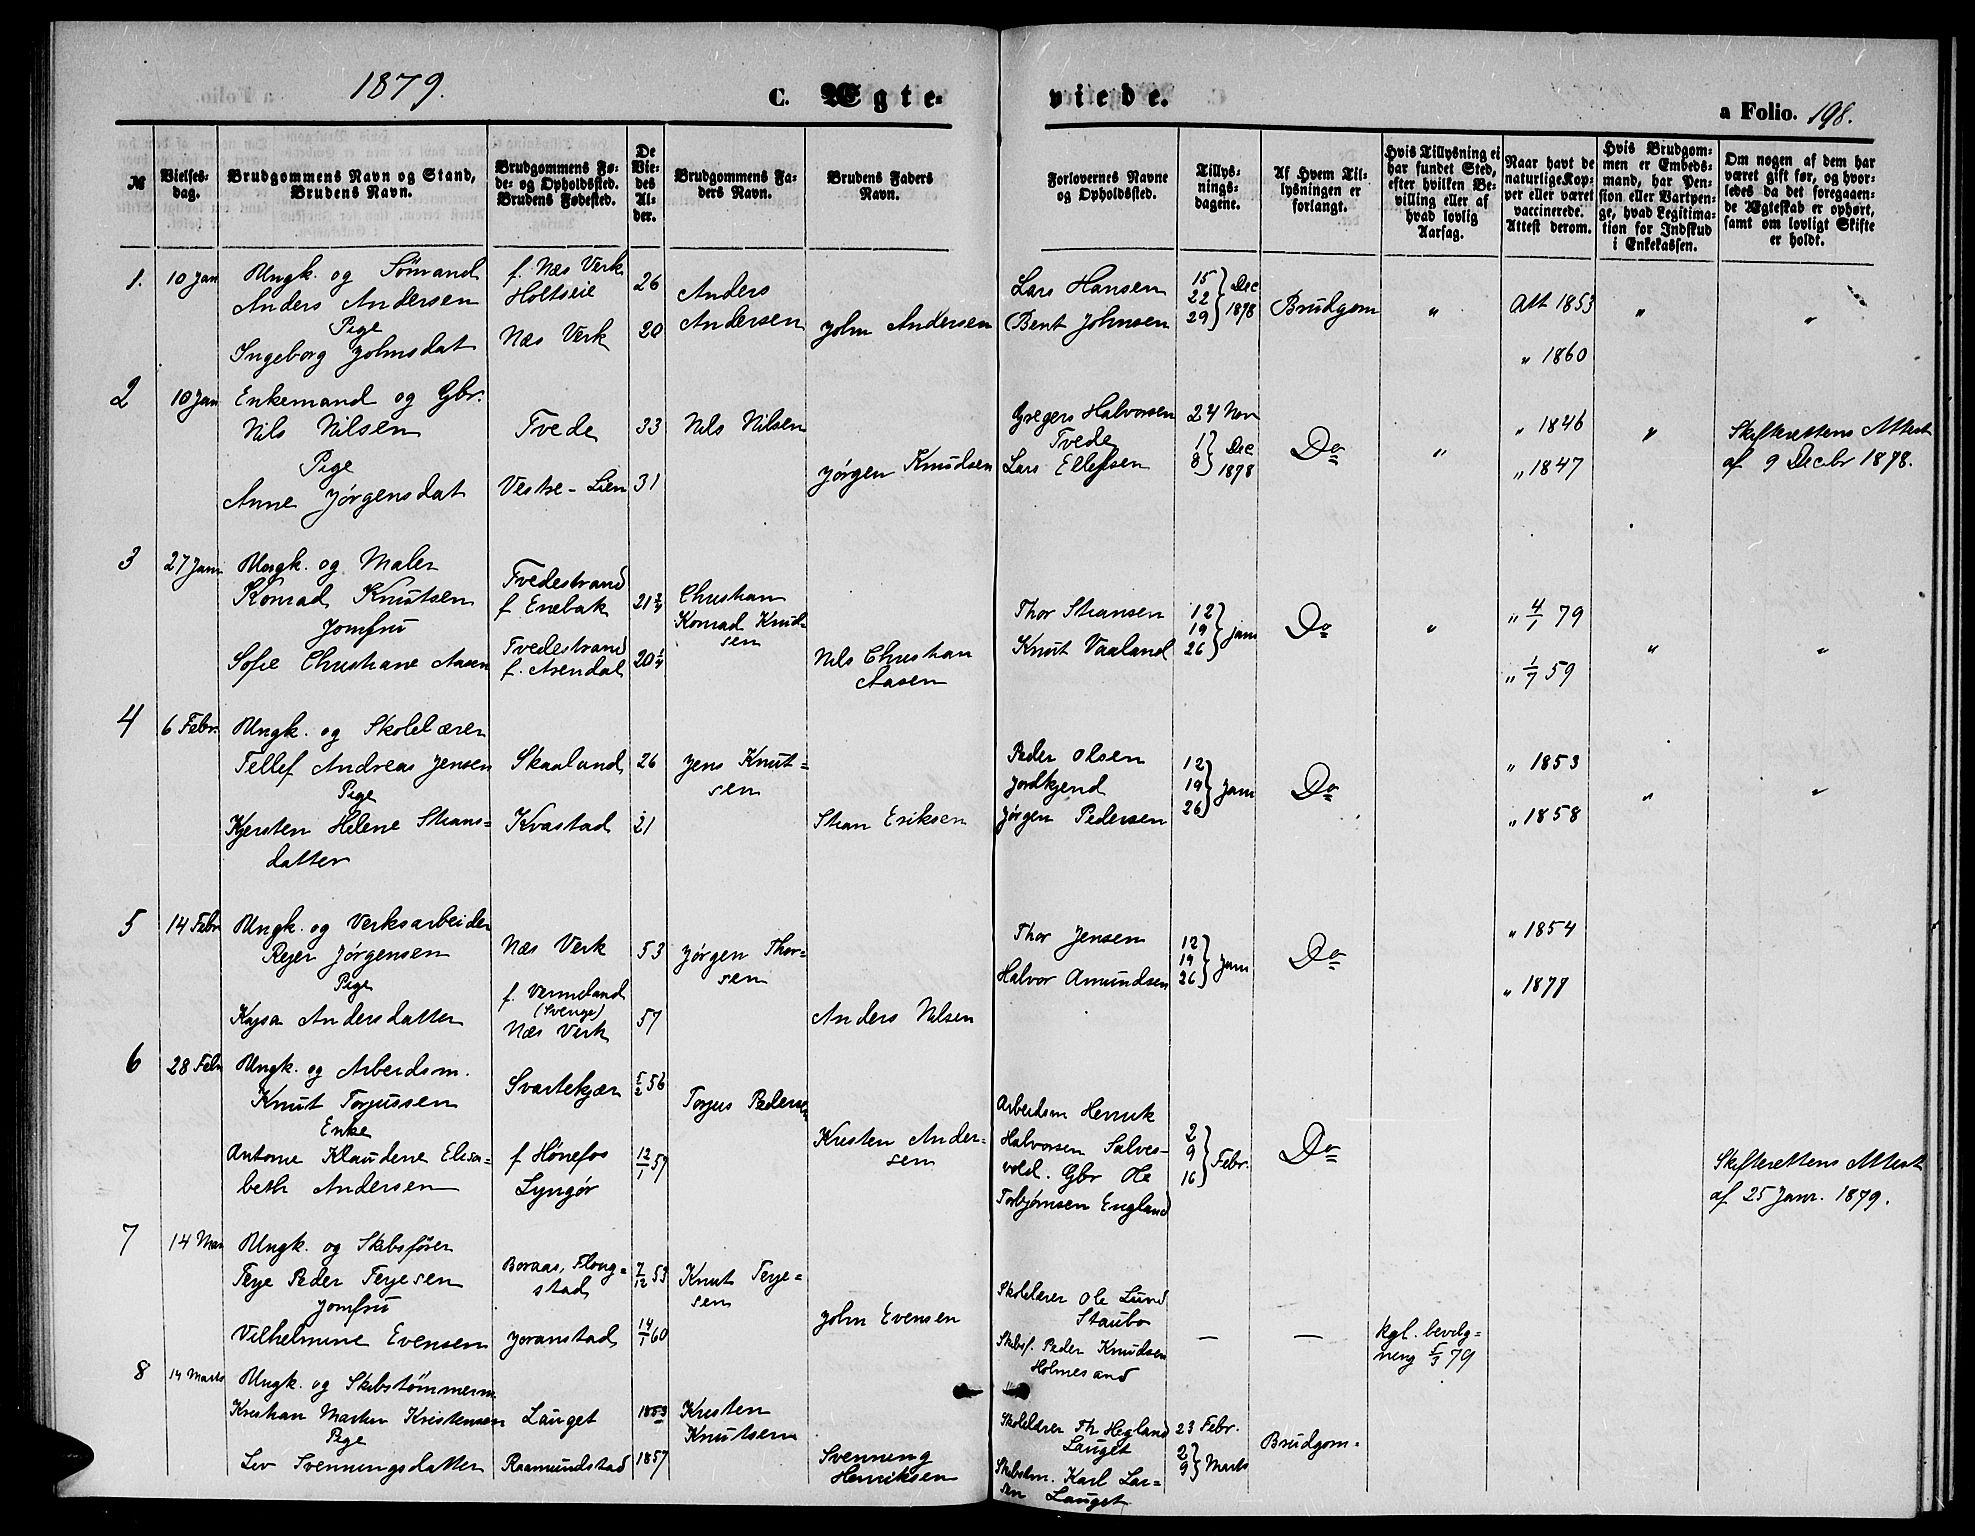 1879.
C. Ægte-
viede.
a Folio. 198.
№
Vielses-
dag.
Brudgommens Navn og Stand,
Brudens Navn.
Brudgommens Fø-
de- og Opholdssted.
Brudens Fødested.
De
Vie-
des
Al-
der.
Brudgommens Fa-
ders Navn.
Brudens Faders
Navn.
Forlovernes Navne
og Opholdssted.
Tillys-
nings-
dagene.
Af Hvem Til-
lysningen er
forlangt.
Hvis Tillysning ei
har fundet Sted,
efter hvilken Be-
villing eller af
hvad lovlig
Aarsag.
Naar havt de
naturlige Kop-
per eller været
vaccinerede.
Attest derom.
Hvis Brudgom-
men er Embeds-
mand, har Pen-
sion eller Vartpen-
ge, hvad Legitima-
tion for Indskud
i Enkekassen.
Om nogen af dem har
været gift før, og hvor-
ledes da det foregaaen-
de Ægteskab er ophørt,
samt om lovligt Skifte
er holdt.
1.
10 Jan
Ungk. og Sömand
Anders Andersen
Pige
Ingeborg Johnsdat
f. Næs Verk
Holtseie
Næs Verk
26
20
Anders
Andersen
John Andersen
Lars Hansen
Bent Johnsen
15
22
29 } Dec
1878
Brudgom
"
Att 1853
" 1860
"
"
2
10 Jan
Enkemand og Gbr.
Nils Nilsen
Pige
Anne Jørgensdat
Tvede
Vestre-Lien
33
31
Nils Nilsen
Jørgen Knudsen
Gregers Halvorsen
Tvede
Lars Ellefsen
24 Nov
1
8 } Dec
1878
Do
"
" 1846
" 1847
"
Skifterettens Attest
af 9 Decbr 1878.
3
27 Jan
Ungk. og Maler
Konrad Knutsen
Jomfru
Sofie Christiane Aasen
Tvedestrand
f. Enebak
Tvedestrand
f. Arendal
21 3/4
20 1/4
Christian
Konrad Knud-
sen
Nils Christian
Aasen
Thor Stiansen
Knut Vaaland
12
19
26 } Jan
Do
"
" 4/1 79
" 1/7 59
"
"
4
6 Febr.
Ungk. og Skolelærer
Tellef Andreas Jensen
Pige
Kjersten Helene Stians-
datter
Skaaland
Kvastad
26
21
Jens Knut-
sen
Stian Eriksen
Peder Olsen
Jordkjend
Jørgen Pedersen
12
19
26 } Jan
Do
" 1853
" 1858
"
"
5
14 Febr
Ungk. og Verksarbeider
Rejer Jørgensen
Pige
Kajsa Andersdatter
Næs Verk
f. Vermeland
(Sverige)
Næs Verk
53
57
Jørgen Thor-
sen
Anders Nilsen
Thor Jensen
Halvor Amundsen
12
19
26 } Jan
Do
" 1854
" 1877
6
28 Febr
Ungk. og Arbeidsm.
Knut Torjussen
Enke
Antonie Klaudine Elisa-
beth Andersen
Svartekjær
f Hønefos
Lyngør
5/2 56
12/1 57
Torjus Pedersen
Kristen Ander-
sen
Arbeidsm Henrik
Halvorsen Salves-
vold. Gbr Ole
Torbjørnsen England
2
9
16 } Febr.
Do
Skifterettens Attest
af 25 Janr. 1879.
7
14 Mar
Ungk. og Skibsfører
Terje Peder Terjesen
Jomfru
Vilhelmine Evensen
Boraas, Flong-
stad
Joranstad
7/12 53
14/1 60
Knut Terje-
sen
John Evensen
Skolelærer Ole Lund
Staubo
Skibsf. Peder Knudsen
Holmesand
—
—
kgl. bevilg-
ning 5/3 79
8
14 Marts
Ungk. og Skibstømmerm
Kristian Martin Kristensen
Pige
Liv Svenningsdatter
Lauget
Raamundstad
1853
1857
Kristen
Knutsen
Svenning
Henriksen
Skolelærer Th Hegland
Lauget
Skibstm. Karl Lar-
sen Lauget
23 Febr.
2
9 } Marts
Brudgom-